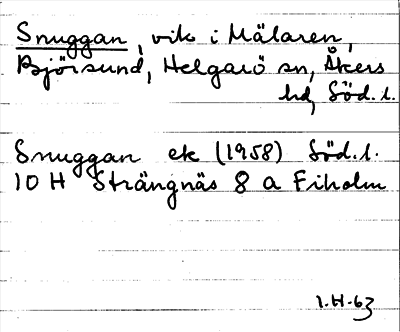 Snuggan, vik i Mälaren,
Björsund, Helgarö sn, Åkers
hd, Söd. l.
Snuggan ek (1958) Söd. l.
10 H Strängnäs 8 a Fiholm
1.H.63